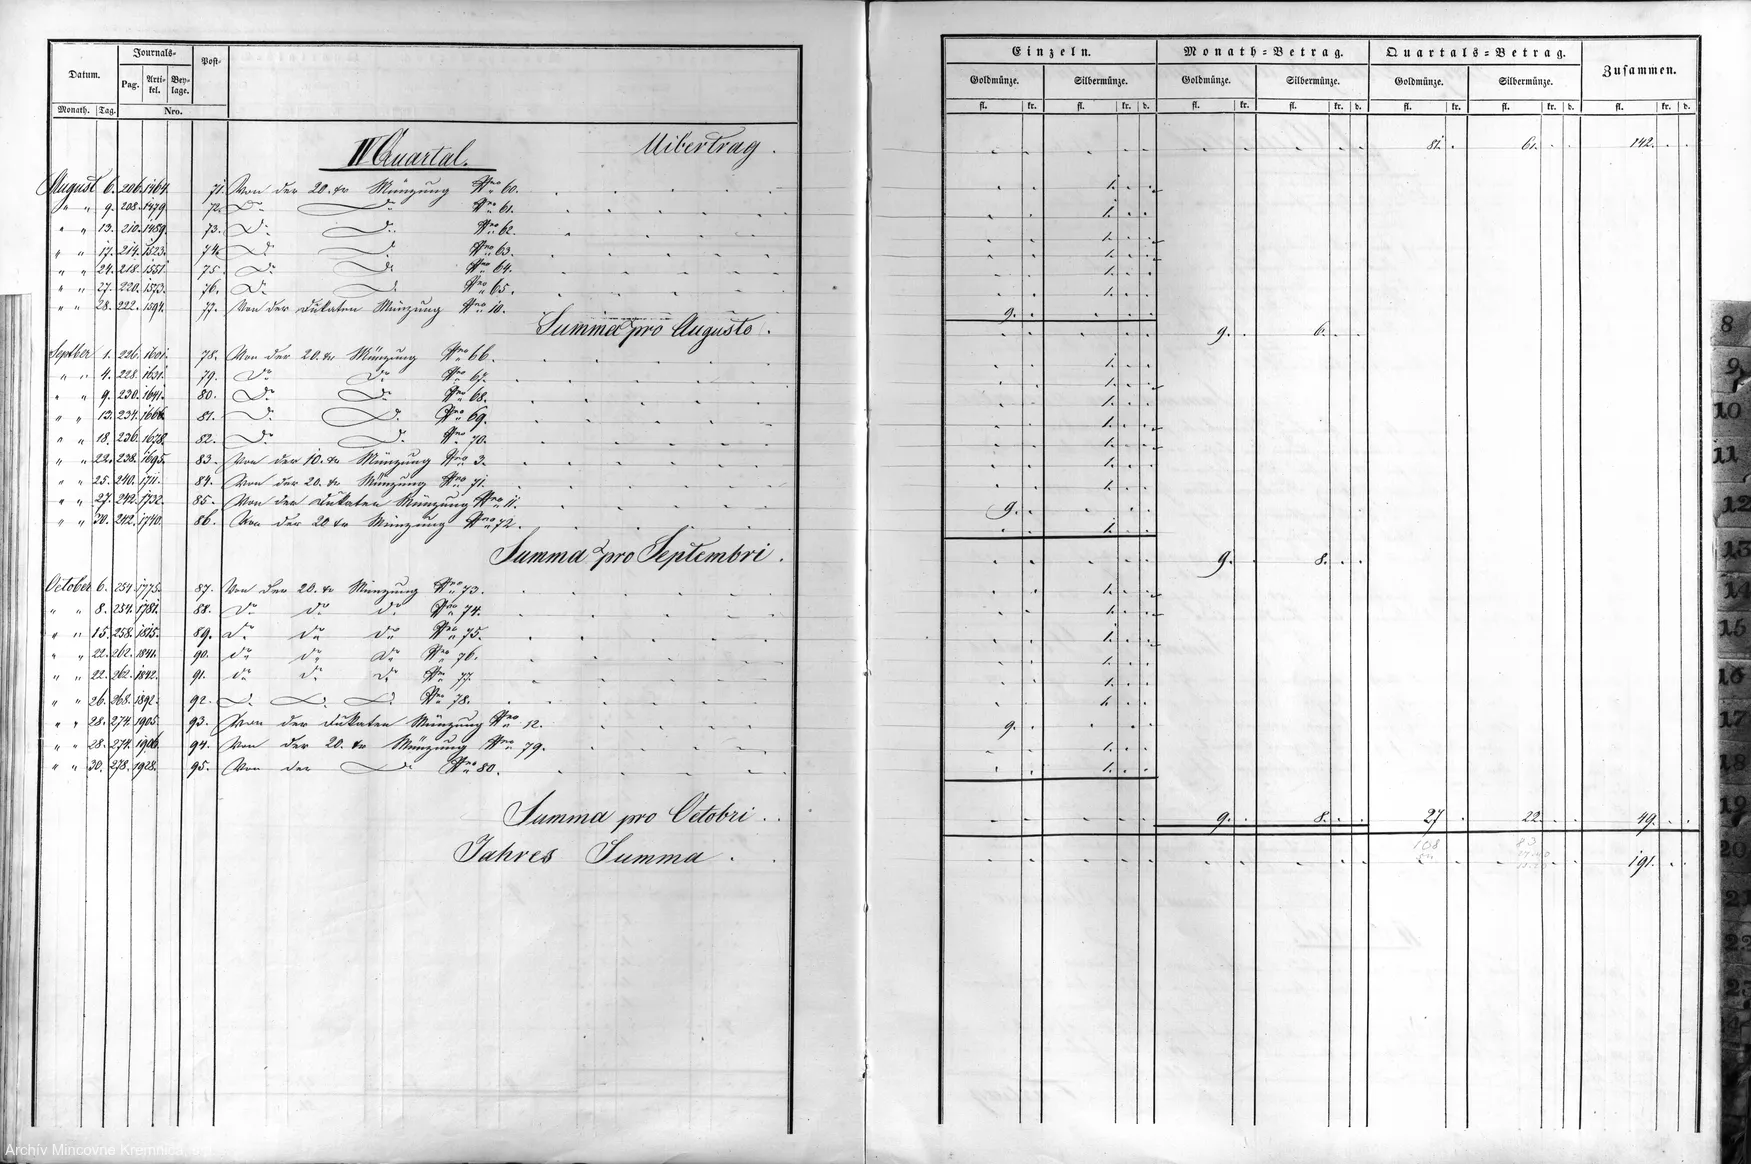 Datum. Journals- Post- Einzeln. Monath=Betrag. Quartals=Betrag. Zusammen.
Pag. Arti-kel. Bey-lage. Goldmünze. Silbermünze. Goldmünze. Silbermünze. Goldmünze. Silbermünze.
Monath. Tag. Nro. fl. kr. fl. kr. d. fl. kr. fl. kr. d. fl. kr. fl. kr. d. fl. kr. d.
IV Quartal. Uibertrag. 81. 61. 142.
August 6. 206. 1464. 71. Von der 20. kr Münzung Nro 60. 1.
" " 9. 208. 1479 72. Do Do Nro 61. 1.
" " 13. 210. 1489. 73. Do Do Nro 62. 1.
" " 17. 214. 1523. 74. Do Do Nro 63. 1.
" " 24. 218. 1551. 75. Do Do Nro 64. 1.
" " 27. 220. 1573. 76. Do Do Nro 65. 1.
" " 28. 222. 1594. 77. Von der Dukaten Münzung Nro 10. 9.
Summa pro Augusto. 9. 6.
Septber 1. 226. 1601. 78. Von der 20. kr Münzung Nro 66. 1.
" " 4. 228. 1631. 79. Do Do Nro 67. 1.
" " 9. 230. 1641. 80. Do Do Nro 68. 1.
" " 13. 234. 81. Do Do Nro 69. 1.
" " 18. 236. 1678. 82. Do Do Nro 70. 1.
" " 22. 238. 1695. 83. Von der 10. kr Münzung Nro 3. 1.
" " 25. 240. 1711. 84. Von der 20. kr Münzung Nro 71. 1.
" " 27. 242. 1732. 85. Von der Dukaten Münzung Nro 11. 9.
" " 30. 242. 1740. 86. Von der 20 kr Münzung Nro 72. 1.
Summa pro Septembri. 9. 8.
October 6. 254. 1775. 87. Von der 20. kr Münzung Nro 73. 1.
" " 8. 254. 1781. 88. Do do do Nro 74. 1.
" " 15. 258. 1815. 89. do do do Nro 75. 1.
" " 22. 262. 1841. 90. do do Do Nro 76. 1.
" " 22. 262. 1842. 91. do do do Nro 77. 1.
" " 26. 268. 1892. 92. Do Do Do Nro 78. 1.
" " 28. 274. 1905. 93. Von der Dukaten Münzung Nro 12. 9.
" " 28. 274. 1906. 94. Von der 20. kr Münzung Nro 79. 1.
" " 30. 278. 1928. 95. Von der Do Nro 80. 1.
Summa pro Octobri. 9. 8. 27 22. 49.
108 83
Jahres Summa. 191.
8
9
10
11
12
13
14
15
16
17
18
19
20
21
22
23
Archív Mincovne Kremnica, š.p.